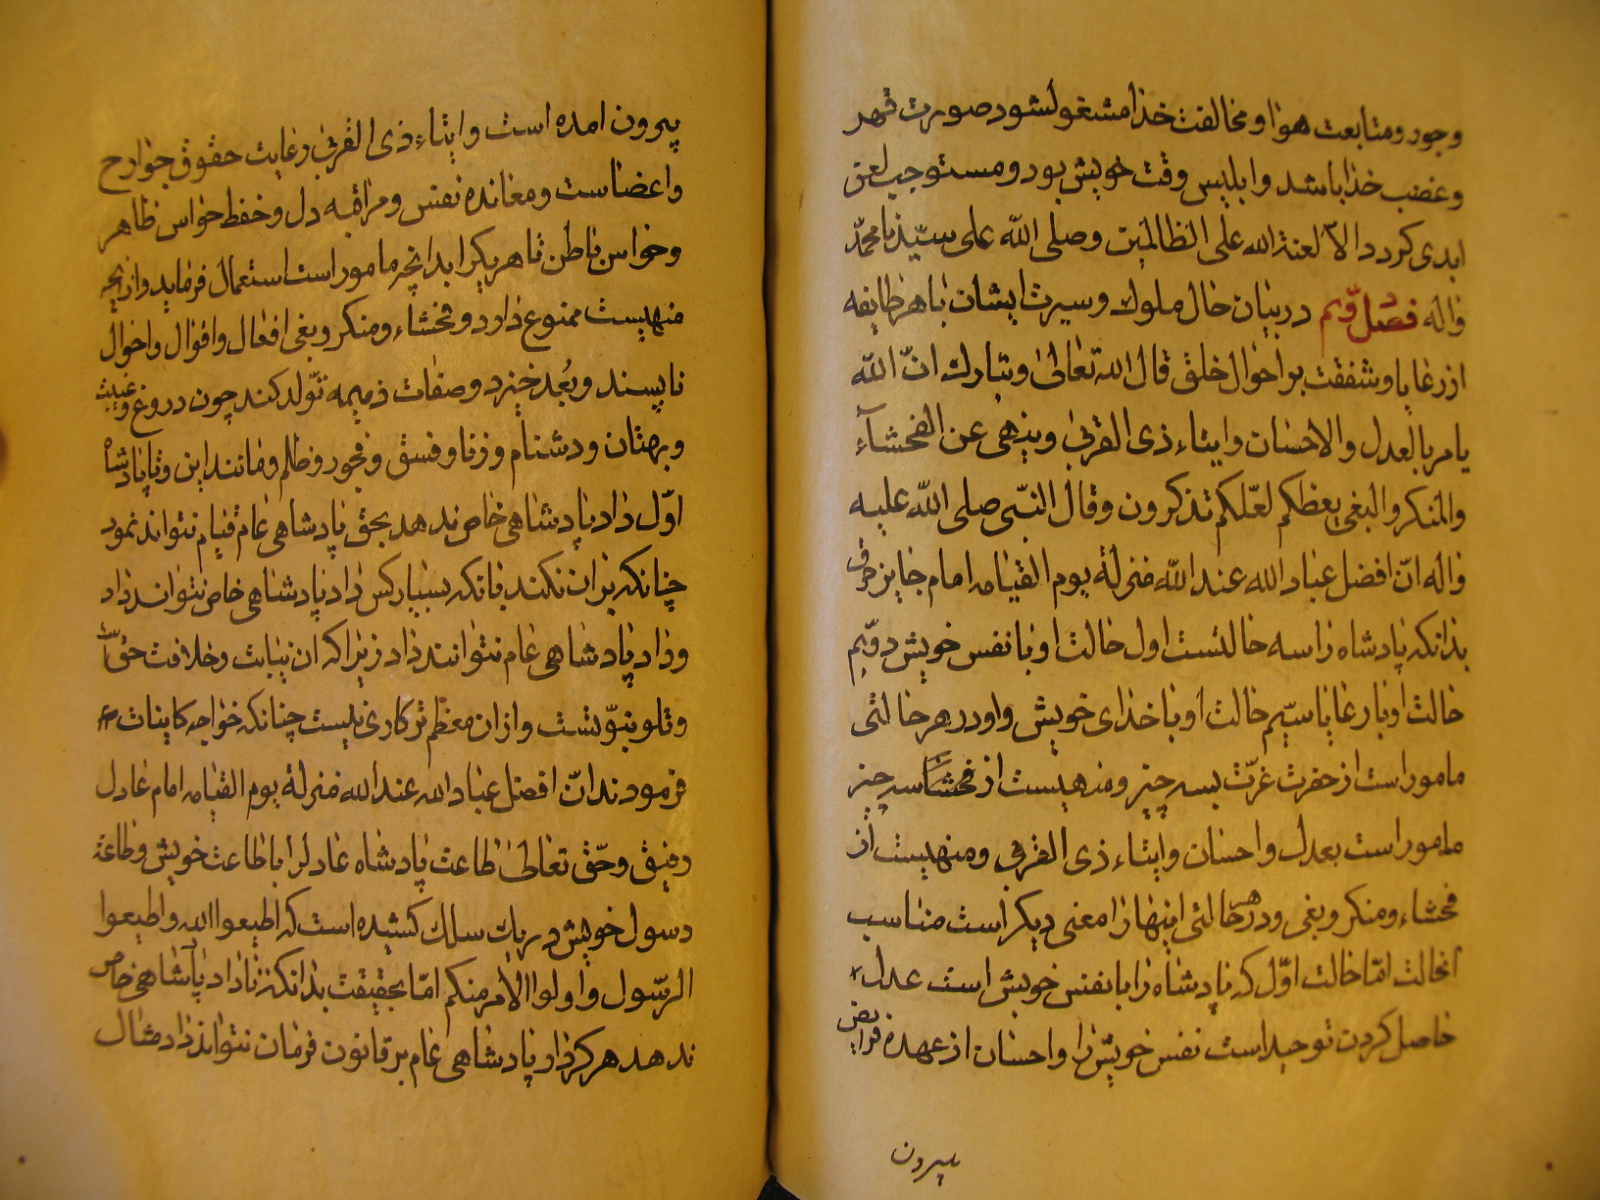 وجور و متابعت هوا و مخالفت خدا مشغول شود صورت قهر
و غضب خدا باشد و ابلیس وقت خویش بود و مستوجب لعنت
ابدی کردد الا لعنة الله علی الظالمین وصلی الله علی سیدنا محمد
واله فصل دوّیم در بیان حال ملوک و سیرت ایشان با هر طایفه
از رعایا و شفقت بر احوال خلق قال الله تعالی و تبارک انّ الله
یامر بالعدل والاحسان وایتاء ذی القربی وینهی عن الفحشآء
والمنکر والبغی یعظکم لعلّکم تذکرون وقال النّبی صلی الله علیه
واله انّ افضل عباد الله عند الله منزلة یوم القیامه امام
بدانکه پادشاه را سه حالتست اول حالت او با نفس خویش دوّیم
حالت او با رعایا سیّم حالت او با خدای خویش و او در هر حالتی
ماموراست از حضرت عزّت بسه چیز و منهیست از سه چیز
ماموراست بعدل و احسان و ایتاء ذی القربی و منهیست از
فحشاء و منکر و بغی و در هر حالتی اینها را معنی دیکر است مناسب
انحالت امّا حالت اوّل که پادشاه را با نفس خویش است عدل
حاصل کردن توحید است نفس خویش را و احسان از عهده فرایض
بیرون
بیرون امده است و ایتاء ذی القربی رعایت حقوق جوارح
و اعضاست و معانده نفس و مراقبه دل و حفظ حواس ظاهر
و حواس باطن تا هر یکرا بدانچه ماموراست استعمال فرماید و ازانچه
منهیست ممنوع دارد و فحشاء و منکر و بغی افعال و اقوال و احوال
ناپسند و بُعد خیزد و صفات ذمیمه تولّد کند چون دروغ و غیبت
و بهتان و دشنام و زنا و فسق و فجور و ظلم و مانند این و تا پادشاه
اوّل داد پادشاهی خاص ندهد بحق پادشاهی عام قیام نتواند نمود
چنانکه بران نکند بانکه بسیار کس داد پادشاهی خاص نتواند داد
و داد پادشاهی عام نتوانند داد زیرا که ان نیابت و خلافت حق است
و تلو نبوّتست و ازان معظم تر کاری نیست چنانکه خواجه کاینات
فرمودند انّ افضل عباد الله عند الله منزلة یوم القیامه امام عادل
رفیق و حقّ تعالی طاعت پادشاه عادلرا با طاعت خویش و طاعة
رسول خویش در یک سلک کشیده است که اطیعوا الله و اطیعوا
الرّسول و اولوا الامر منکم امّا بحقیقت بدانکه تا داد پادشاهی خاص
ندهد هرکز داو پادشاهی عام بر قانون فرمان نتواند داد مثال